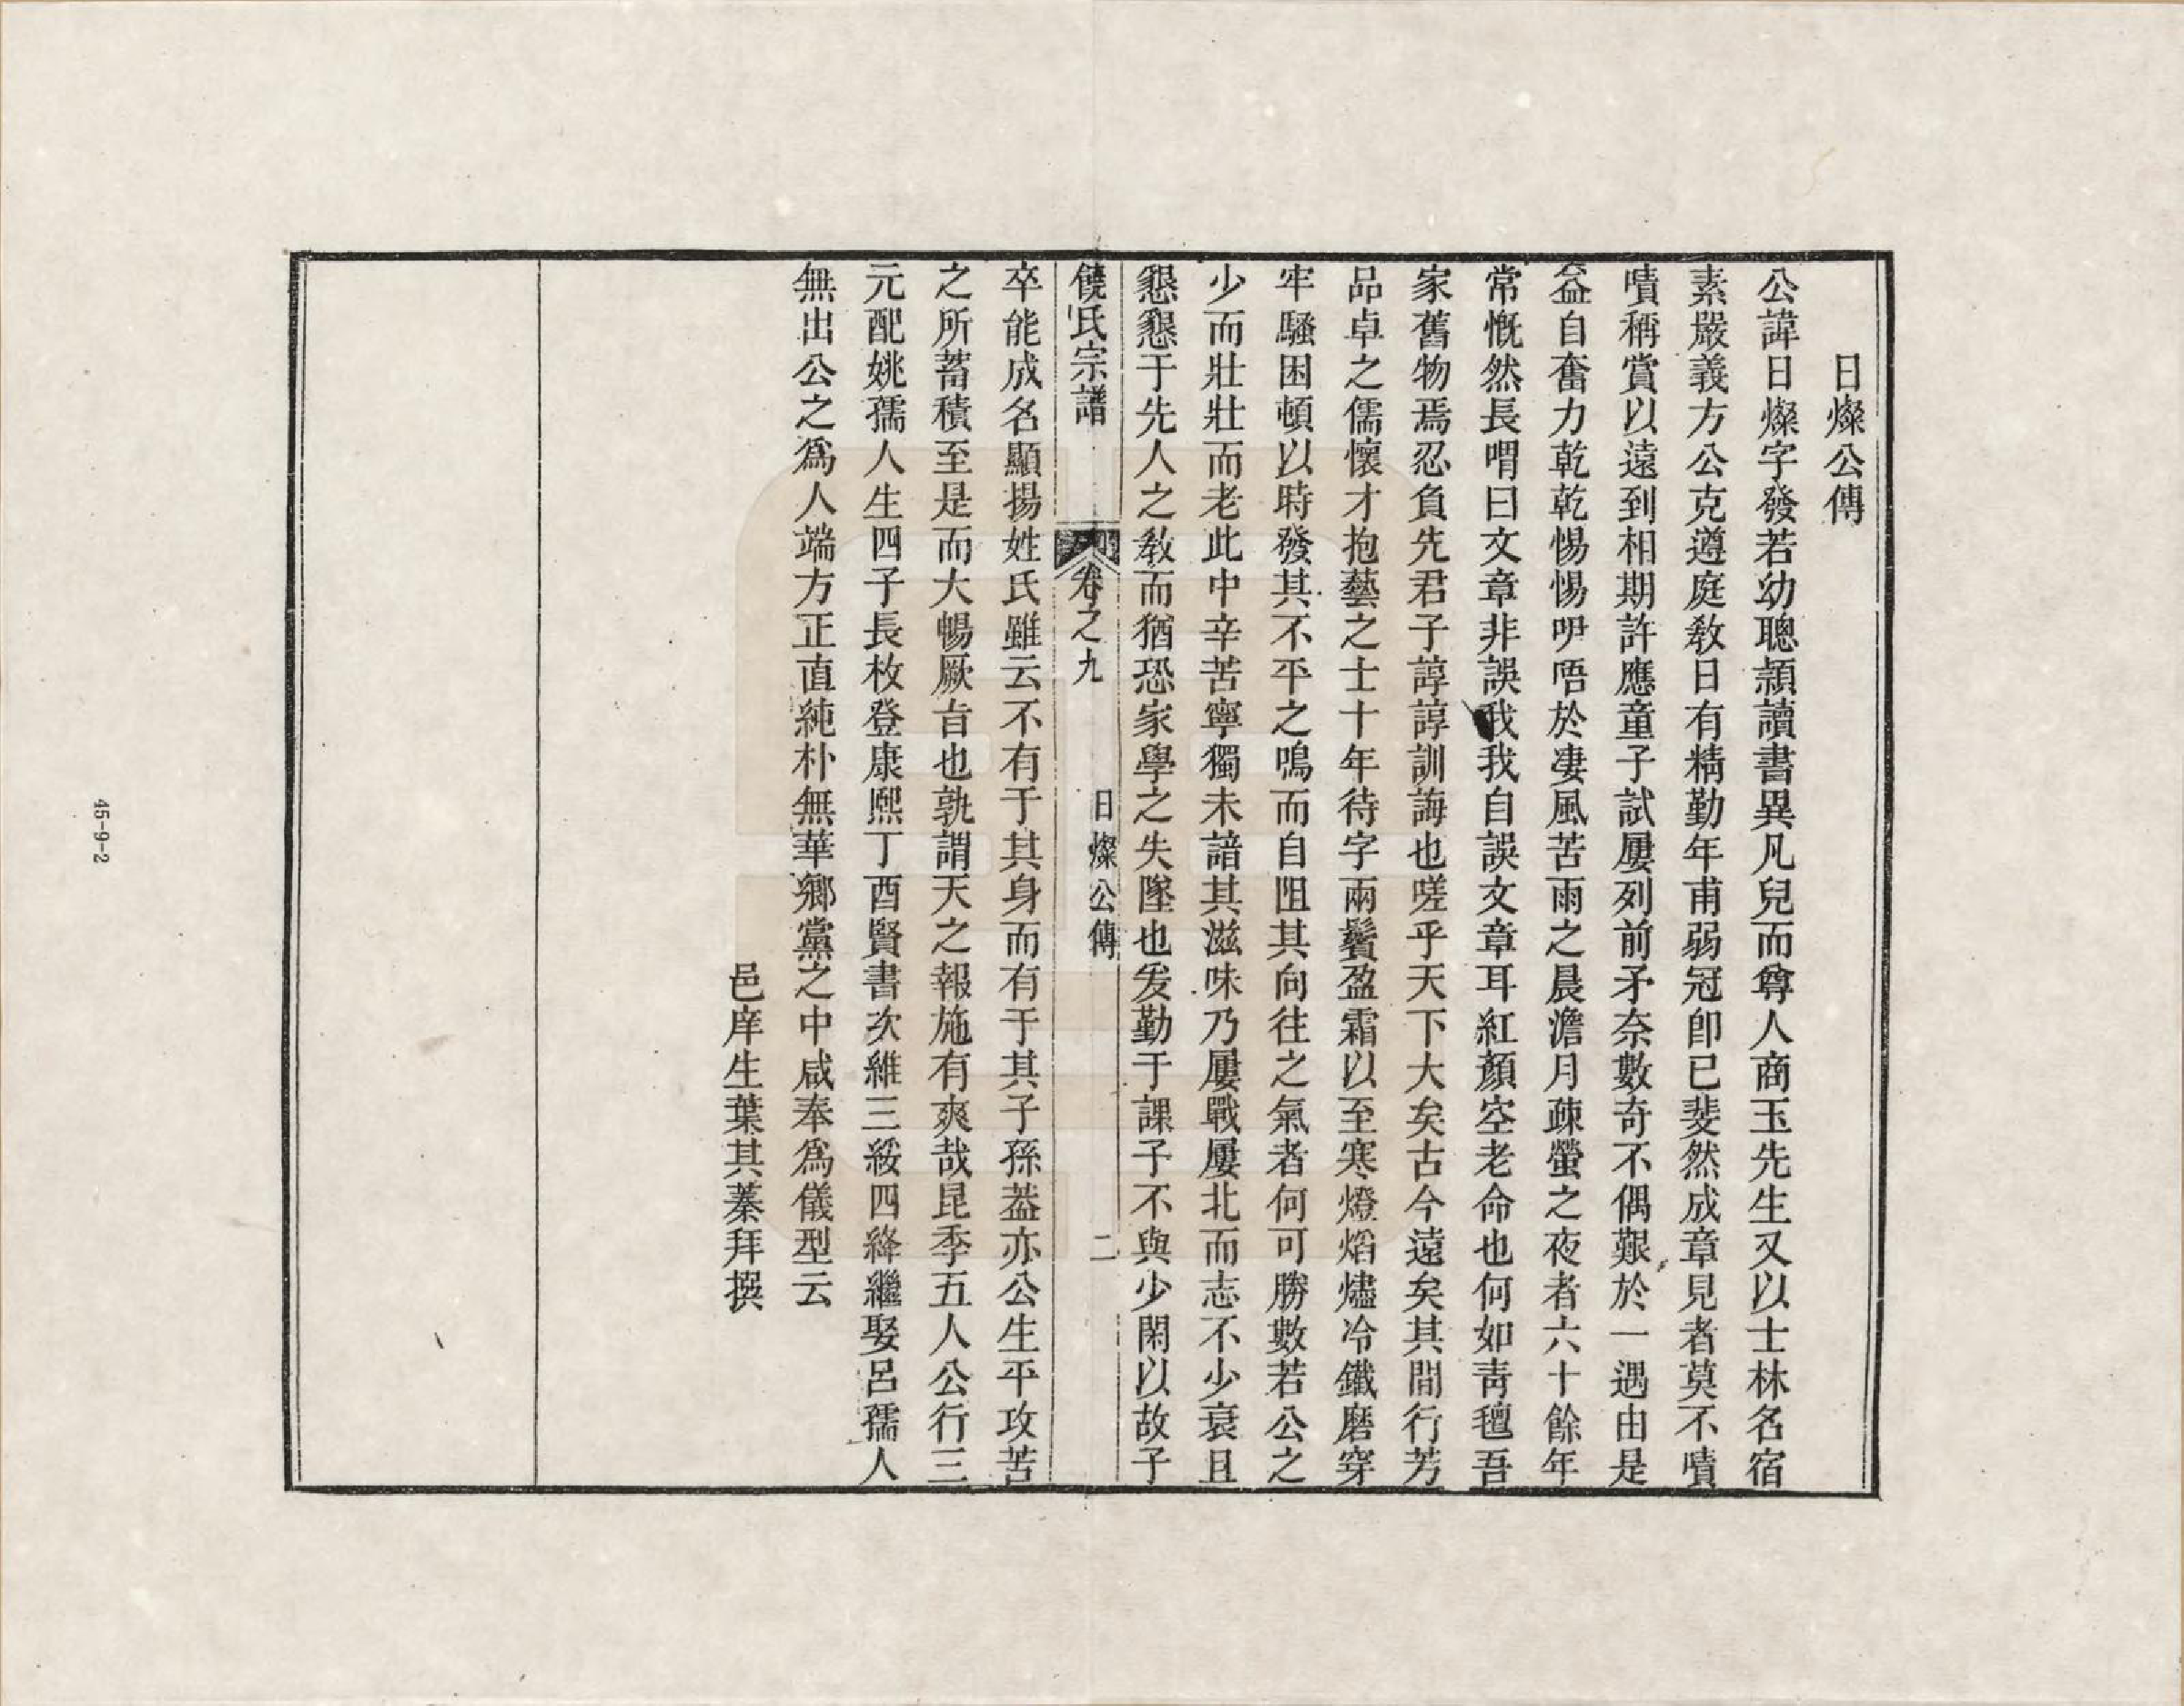 日燦公傳
公諱日燦字發若幼聰頴讀書異凡兒而尊人商玉先生又以士林名宿
素嚴義方公克遵庭敎日有精勤年甫弱冠卽已斐然成章見者莫不嘖
嘖稱賞以遠到相期許應童子試屢列前矛奈數奇不偶艱於一遇由是
益自奮力乾乾惕惕吚唔於凄風苦雨之晨澹月疎螢之夜者六十餘年
常慨然長喟曰文章非誤我我自誤文章耳紅顏空老命也何如靑氊吾
家舊物焉忍負先君子諄諄訓誨也嗟乎天下大矣古今遠矣其間行芳
品卓之儒懷才抱藝之士十年待字兩鬢盈霜以至寒燈焰燼冷鐵磨穿
牢騷困頓以時發其不平之鳴而自阻其向往之氣者何可勝數若公之
少而壯壯而老此中辛苦寧獨未諳其滋味乃屢戰屢北而志不少衰且
懇懇于先人之敎而猶恐家學之失墜也爰勤于課子不與少閑以故子
饒氏宗譜 卷之九 日燦公傳 二
卒能成名顯揚姓氏雖云不有于其身而有于其子孫葢亦公生平攻苦
之所蓄積至是而大暢厥旨也孰謂天之報施有爽哉昆季五人公行三
元配姚孺人生四子長枚登康熙丁酉賢書次維三綏四絳繼娶呂孺人
無出公之爲人端方正直純朴無華鄉黨之中咸奉爲儀型云
邑庠生葉其蓁拜撰
45-9-2